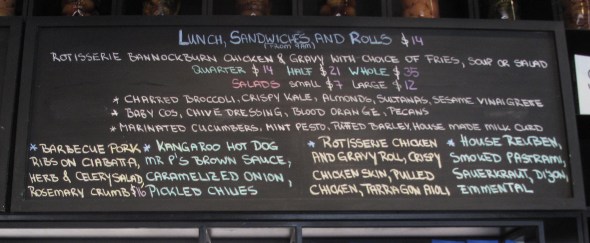 LUNCH, SANDWICHES AND ROLLS $14
(FROM 9AM)
ROTISSERIE BANNOCKBURN CHICKEN & GRAVY WITH CHOICE OF FRIES, SOUP OR SALAD
QUARTER $14 HALF $21 WHOLE $35
SALADS SMALL $7 LARGE $12
* CHARRED BROCCOLI, CRISPY KALE, ALMONDS, SULTANAS, SESAME VINAIGRETE
* BABY COS, CHIVE DRESSING, BLOOD ORANGE, PECANS
* MARINATED CUCUMBERS, MINT PESTO, PUFFED BARLEY, HOUSE MADE MILK CURD
* BARBECUE PORK
RIBS ON CIABATTA,
HERB & CELERY SALAD,
ROSEMARY CRUMB $10
* KANGAROO HOT DOG
MR P'S BROWN SAUCE,
CARAMELIZED ONION,
PICKLED CHILIES
* ROTISSERIE CHICKEN
AND GRAVY ROLL, CRISPY
CHICKEN SKIN, PULLED
CHICKEN, TARRAGON AIOLI
* HOUSE REUBEN,
SMOKED PASTRAMI,
SAUERKRAUT, DIJON,
EMMENTAL